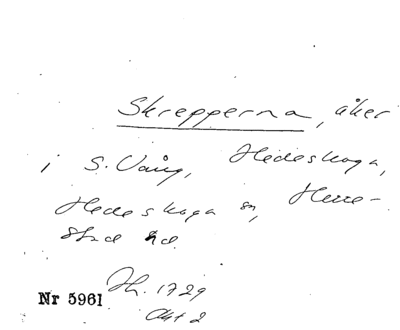 Skrepperna, åker
i S. Vång, Hedeskoga,
Hedeskoga sn, Herre-
stad hd
Jh. 1729
Akt 2
Nr 5961